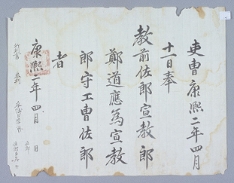 吏曹康熙二年四月
十一日奉
教前佐郎宣教郎
鄭道應爲宣教
郎守工曹佐郎
者
康熙二年四月　日